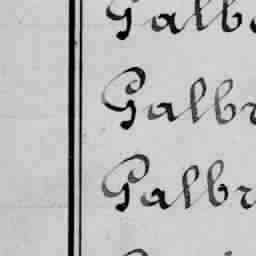 Galb
Galbr
Galbr